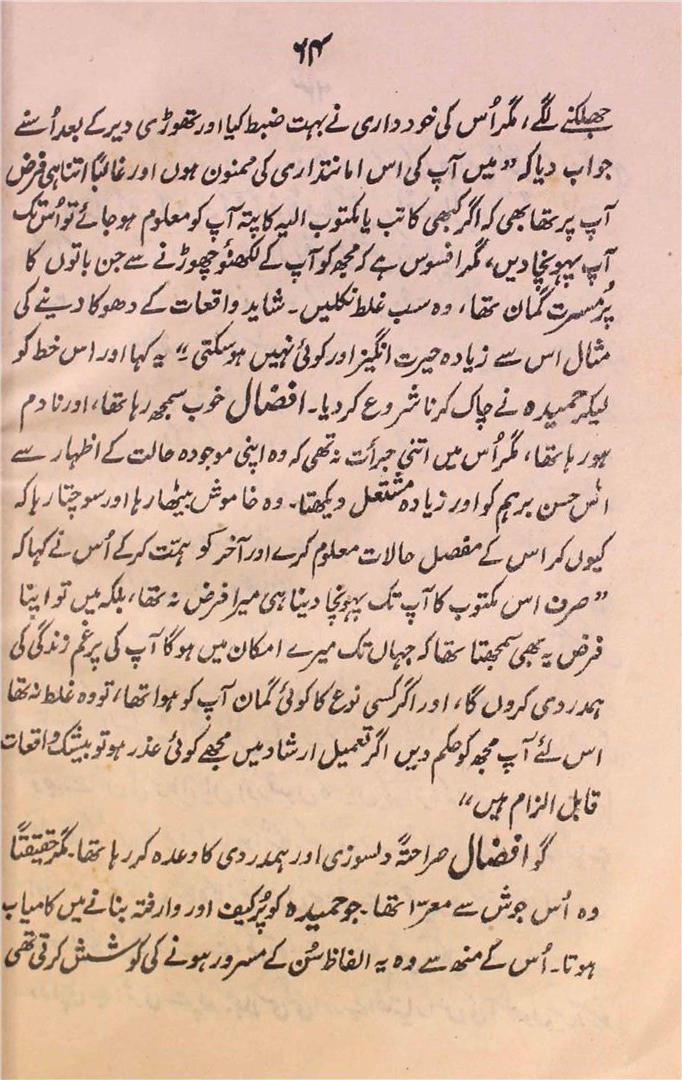 ۶۴
جھلکنے لگے، مگر اُس کی خود داری نے بہت ضبط کیا اور تھوڑی دیر کے بعد اُسنے
جواب دیا کہ ”میں آپ کی اس امانتداری کی ممنون ہوں اور غالباً اتنا ہی فرض
آپ پر تھا بھی کہ اگر کبھی کاتب یا مکتوب الیہ کا پتہ آپ کو معلوم ہو جائے تو اُس تک
آپ پہونچا دیں، مگر افسوس ہے کہ مجھ کو آپ کے لکھنؤ چھوڑنے سے جن باتوں کا
پُر مسرت گمان تھا، وہ سب غلط نکلیں۔ شاید واقعات کے دھوکا دینے کی
مثال اس سے زیادہ حیرت انگیز اور کوئی نہیں ہوسکتی“ یہ کہا اور اس خط کو
لیکر حمیدہ نے چاک کرنا شروع کر دیا۔ افضال خوب سمجھ رہا تھا، اور نادم
ہو رہا تھا، مگر اُس میں اتنی جرأت نہ تھی کہ وہ اپنی موجودہ حالت کے اظہار سے
اُس حسن برہم کو اور زیادہ مشتعل دیکھتا۔ وہ خاموش بیٹھا رہا اور سوچتا رہا کہ
کیوں کر اس کے مفصل حالات معلوم کرے اور آخر کو ہمّت کر کے اُس نے کہا کہ
”صرف اس مکتوب کا آپ تک پہونچا دینا ہی میرا فرض نہ تھا، بلکہ میں تو اپنا
فرض یہ بھی سمجھتا تھا کہ جہاں تک میرے امکان میں ہوگا آپ کی پر غم زندگی کی
ہمدردی کروں گا، اور اگر کسی نوع کا کوئی گمان آپ کو ہوا تھا، تو وہ غلط نہ تھا
اس لئے آپ مجھ کو حکم دیں اگر تعمیل ارشاد میں مجھے کوئی عذر ہو تو بیشک واقعات
قابل الزام ہیں“
گو افضال صراحتہً دلسوزی اور ہمدردی کا وعدہ کر رہا تھا۔ مگر حقیقتاً
وہ اُس جوش سے معرّا تھا۔ جو حمیدہ کو پُر کیف اور وارفتہ بنانے میں کامیاب
ہوتا۔ اُس کے منھ سے وہ یہ الفاظ سُن کے مسرور ہونے کی کوشش کرتی تھی